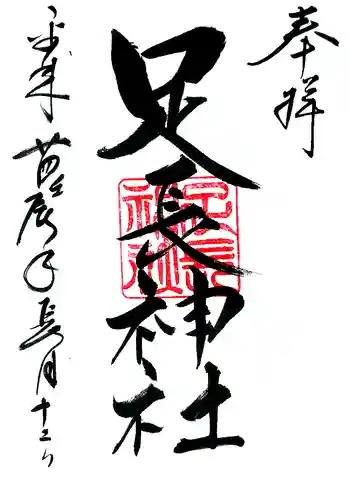 奉拝
足長神社
足長神社
平成 廿四 辰年 長月 十二日